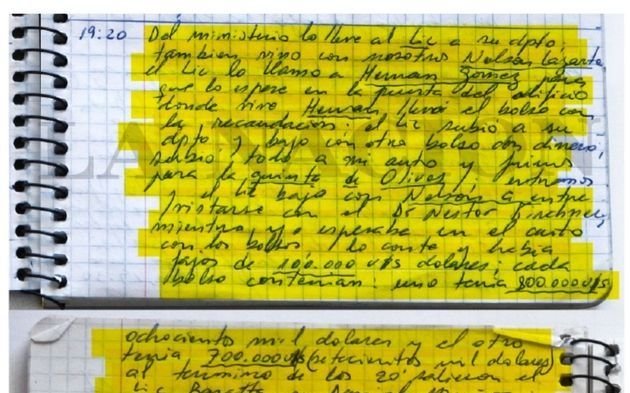 19:20 Del ministerio lo lleve al Lic a su dpto,
tambien vino con nosotros Nelson Lazarte
el Lic lo llamo a Hernan Gomez para
que lo espere en la puerta del edificio
donde vive Hernan llevó el bolso con
la recaudación; el Lic subió a su
dpto y bajo con otro bolso con dinero,
subio todo a mi auto y fuimos
para la quinta de Olivos, entramos
y el Lic bajo con Nelson a entre
vistarse con el Dr Nestor Kirchner,
mientras yo esperaba en el auto
con los bolsos, lo conte y habia
fajos de 100.000 U$s dolares; cada
bolso contenian: uno tenia 800.000 U$s
LA NACION
ochocientos mil dolares y el otro
tenia 700.000 U$s (setecientos mil dolares)
al termino de los 20' salieron el
Lic Baratta